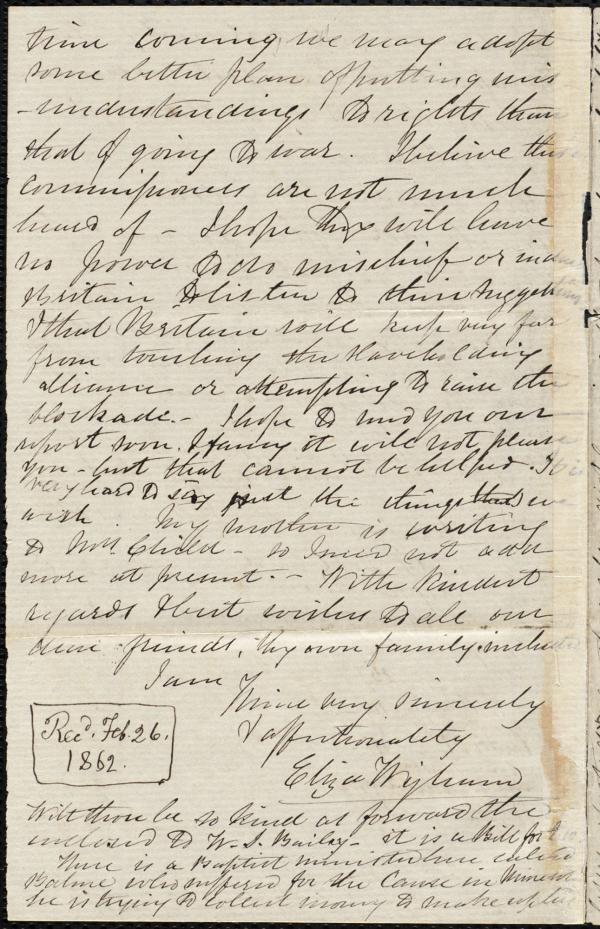 time coming, we may adopt
some better plan of putting mis
-understandings to rights than
that of going to war. I believe these
commissioners are not much
heard of - I hope they will have
no power to do mischief or induce
Britain to listen to their
& that Britain will keep very far
from touching the slaveholding
alliance or attempting to raise the
blockade. - I hope to send you our
report soon. I fancy it will not please
you - but that cannot be helped. It is
very hard to say just the things that we
wish. My mother is writing
to Mrs. Child - so I need not add
more at present. - With kindest
regards & best wishes to all our
dear friends, thy own family included
I am
Thine very sincerely
& affectionately
Eliza Wigham
Recd. Feb. 26.
1862.
Wilt thou be so kind as forward the
enclosed to W. S. Bailey - it is a Bill for
There is a Baptist minister here called
Balme who suffered for the Cause in
he is trying to collect money to make up